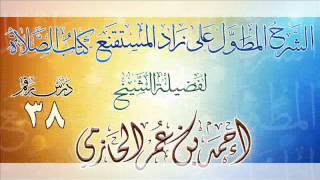 الشرح المطول على زاد المستقنع كتاب الصلاة
لفضيلة الشيخ
درس رقم
٣٨
أحمد بن عمر الحازمي